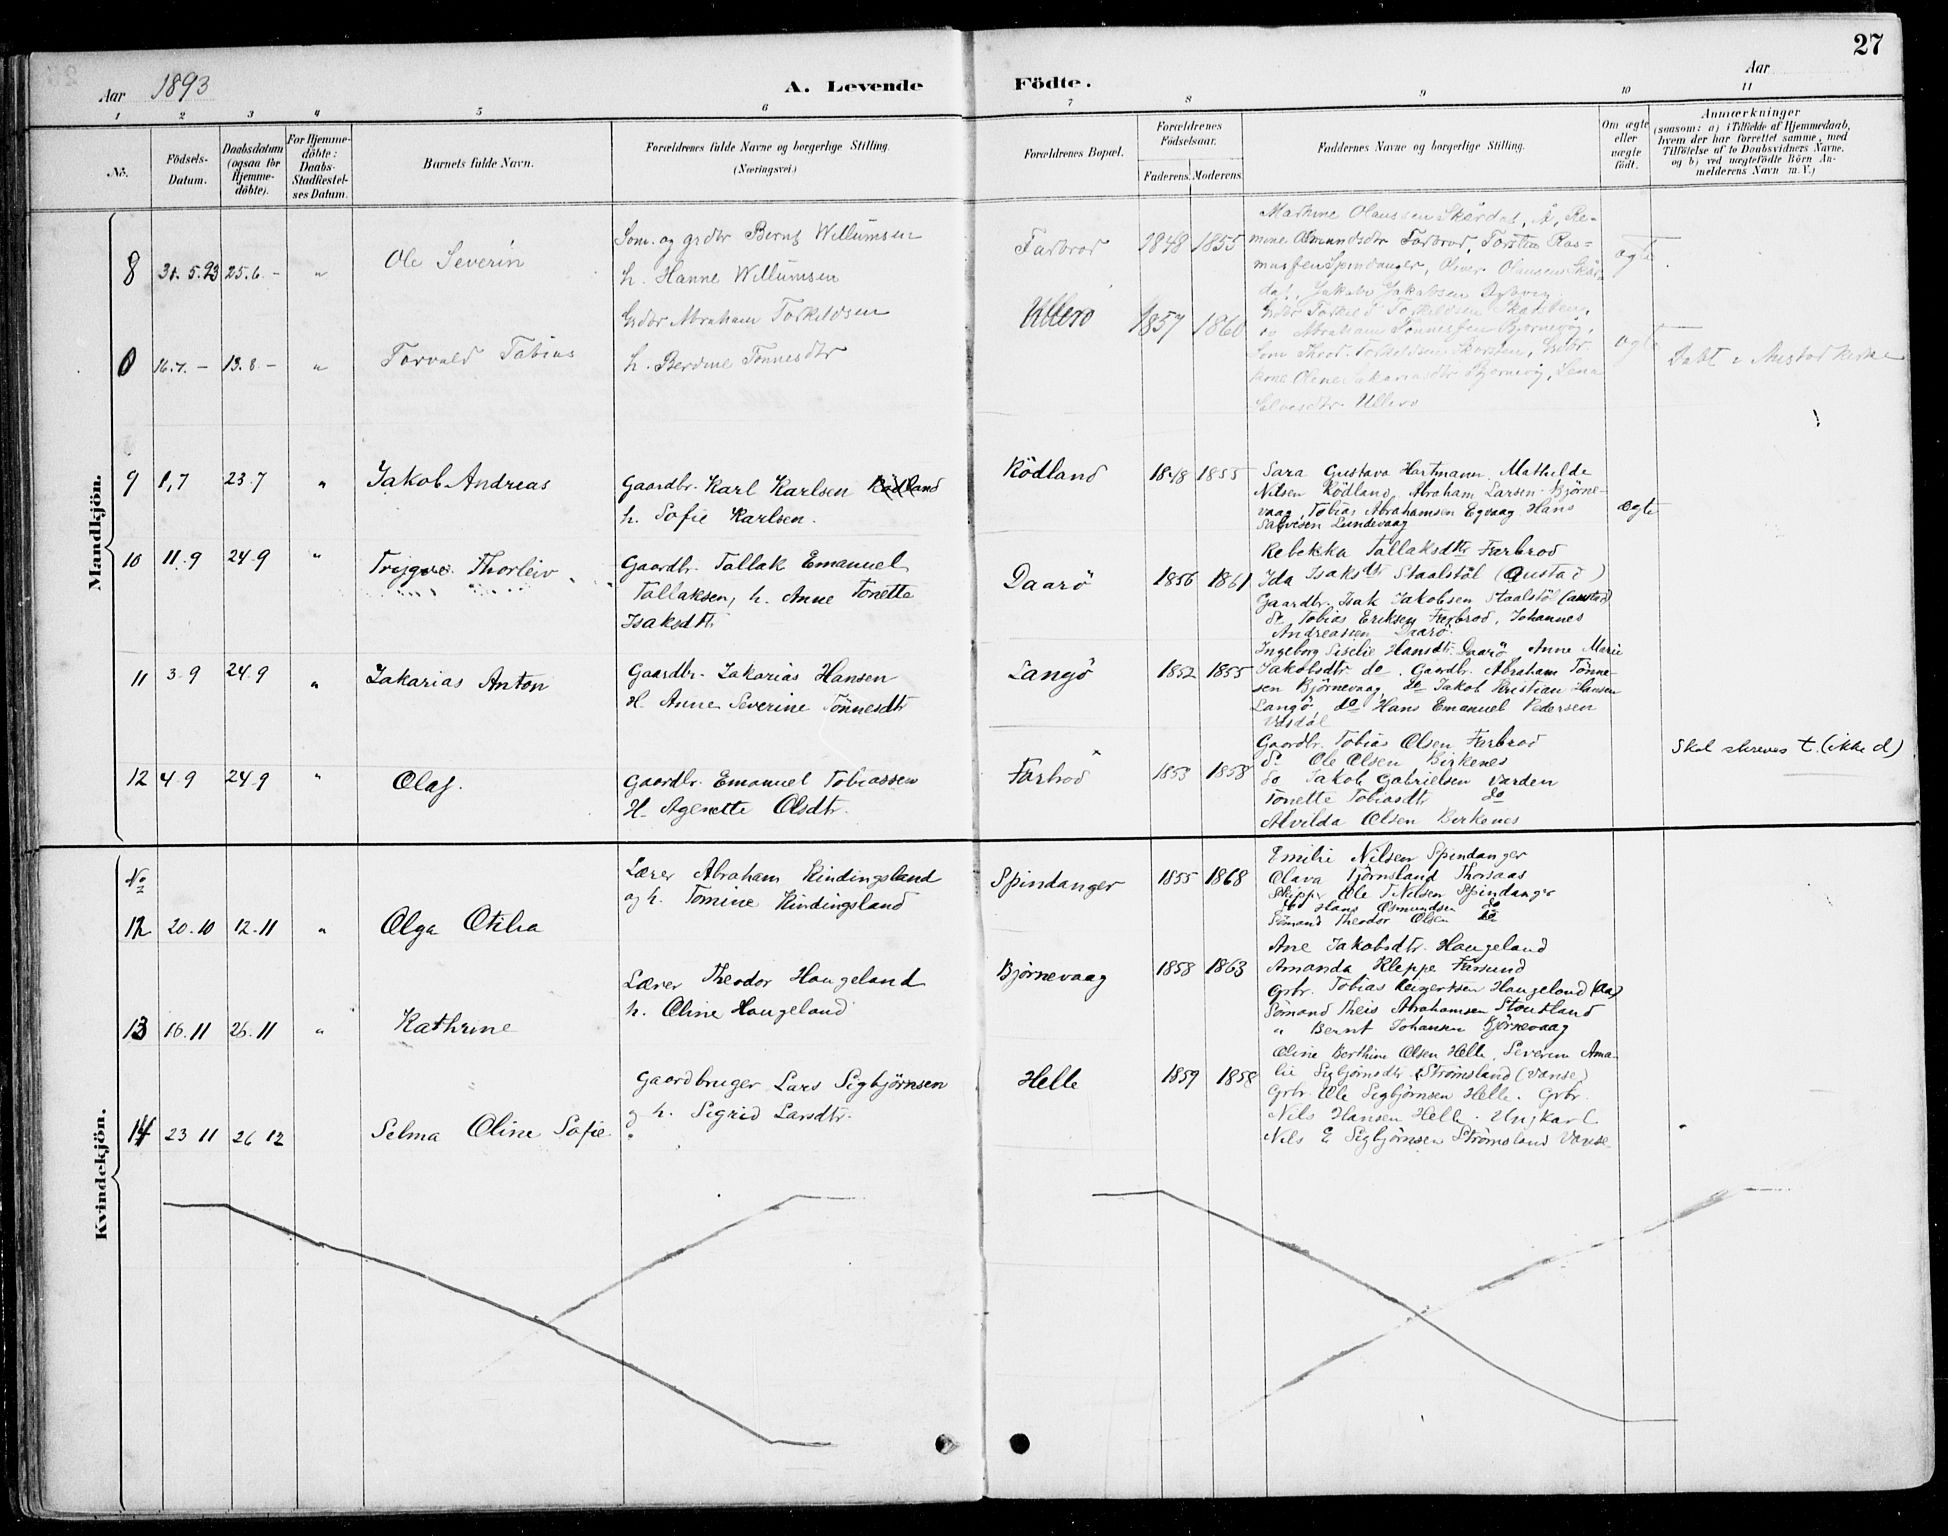 27
Aar 1893
A. Levende Födte.
Aar
1 2 3 4 5 6 7 8 9 10 11
No.
Födsels-Datum.
Daabsdatum (ogsaa for Hjemme-döbte).
For Hjemme-döbte: Daabs-Stadfæstel-ses Datum.
Barnets fulde Navn.
Forældrenes fulde Navne og borgerlige Stilling.
(Næringsvei.)
Forældrenes Bopæl.
Forældrenes Födselsaar.
Faderens. Moderens.
Faddernes Navne og borgerlige Stilling.
Om ægte eller uægte födt.
Anmærkninger
(saasom: a) i Tilfælde af Hjemmedaab,
hvem der har forrettet samme, med
Tilföielse af to Daabsvidners Navne,
og b) ved uægtefödte Börn An-
melderens Navn m. V.)
Mandkjön.
8 31.5.93 25.6.- " Ole Severin
Som. og grdbr Bernt Willumsen
h. Hanne Willumsen
Farbrod 1848 1855
Olaussen Skårdal, Re-
mine Farbrod Torstein Ras-
mussen Spindanger, Oliver Olaussen Skår-
dal, Jakob Jakobsen
ægte
0 16.7.- 13.8- " Torvald Tobias
Grdbr Abraham Torkildsen
h. Berdine Tönnesdtr
Ullerö 1857 1860
Grdbr Torkild Torkildsen
Abraham Tönnessen Bjernevig,
Olene Sakariasdtr Bjernevig, Lena
Ullerö
ægte
Döbt i Austad Kirke
9 1,7 23.7 " Jakob Andreas
Gaardbr. Karl Karlsen Rødland
h. Sofie Karlsen.
Rödland 1848 1855
Sara Gustava Hartmann, Mathilde
Nilsen Rödland, Abraham Larsen Bjørne-
vaag, Tobias Abrahamsen Egvaag Hans
Salvesen Lundevaag
ægte
10 11.9 24.9 " Trygve Thorleiv
Gaardbr. Tallak Emanuel
Tallaksen, h. Anne Tonette
Isaksdtr
Daarö 1856 1861
Rebekka Tallaksdtr Farbrod
Ida Isaksdtr Staalstöl (Austad)
Gaardbr. Isak Jakobsen Staalstöl (Austad)
do Tobias Eriksen Farbrod, Johannes
Andreassen Daarö.
11 3.9 24.9 " Zakarias Anton
Gaardbr. Zakarias Hansen
H. Anne Severine Tönnesdtr
Langö 1852 1855
Ingeborg Siselie Hansdtr. Daarö, Anne Marie
Jakobsdtr. do. Gaardbr. Abraham Tönne-
sen Björnevaag, do Jakob Kristian Hansen
Langö, do Hans Emanuel Pedersen
Vasdal
12 4.9 24.9 " Olaf.
Gaardbr. Emanuel Tobiassen
H. Agenette Olsdtr.
Farbrod 1853 1858
Gaardbr. Tobias Olsen Farbrod
do Ole Olsen Birkenes
do Jakob Gabrielsen Varden
Tonette Tobiasdtr. do
Alvilda Olsen Birkenes
Skal skreves t. (ikke d)
Kvindekjön.
No
12 20.10 12.11 " Olga Otilia
Lærer Abraham Kindingsland
og h. Tomine Kindingsland
Spindanger 1855 1868
Emilie Nilsen Spindanger
Olava Tjörnsland Thorsaas
Skipper Ole T Nilsen Spindanger
do Hans Osmundsen do
Sömand Theodor Olsen do
13 16.11 26.11 " Kathrine
Lærer Theodor Haugeland
h. Oline Haugeland
Bjørnevaag 1858 1863
Ane Jakobsdtr. Haugeland
Amanda Kleppe Farsund
Grbr. Tobias Haugeland (Aa)
Sömand Theis Abrahamsen Stoutland
" Bernt Johansen Bjørnevaag
14 23 11 26 12 Selma Oline Sofie
Gaardbruger Lars Sigbjørnsen
og h. Sigrid Larsdtr.
Helle 1859 1858
Oline Berthine Olsen Helle, Severine Ama-
lie Sigbjørnsdtr. Strømsland (Vanse)
Grbr. Ole Sigbjørnsen Helle. Grbr.
Nils Hansen Helle. Ungkarl
Nils E Sigbjørnsen Strømsland Vanse